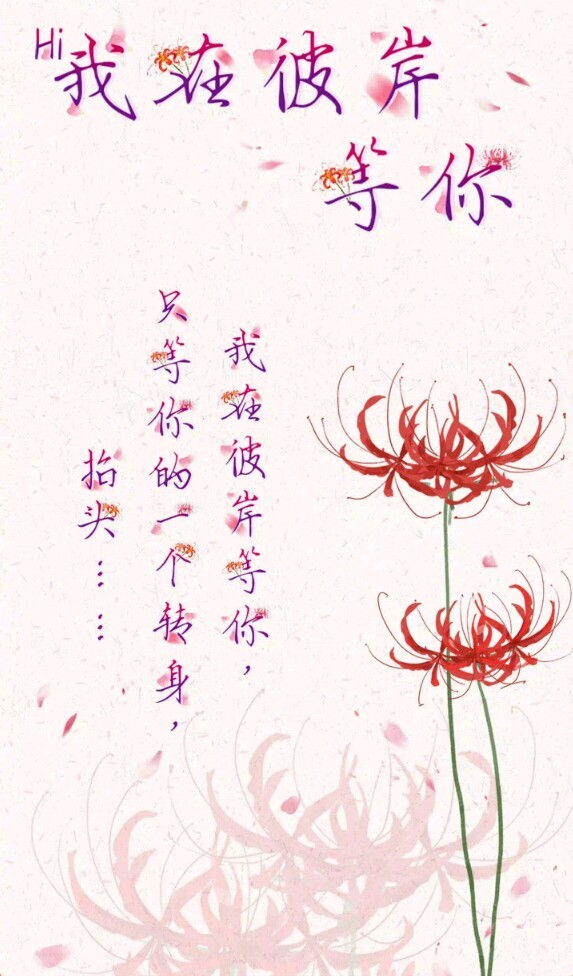 Hi
我在彼岸
等你
我在彼岸等你，
只等你的一个转身，
抬头……